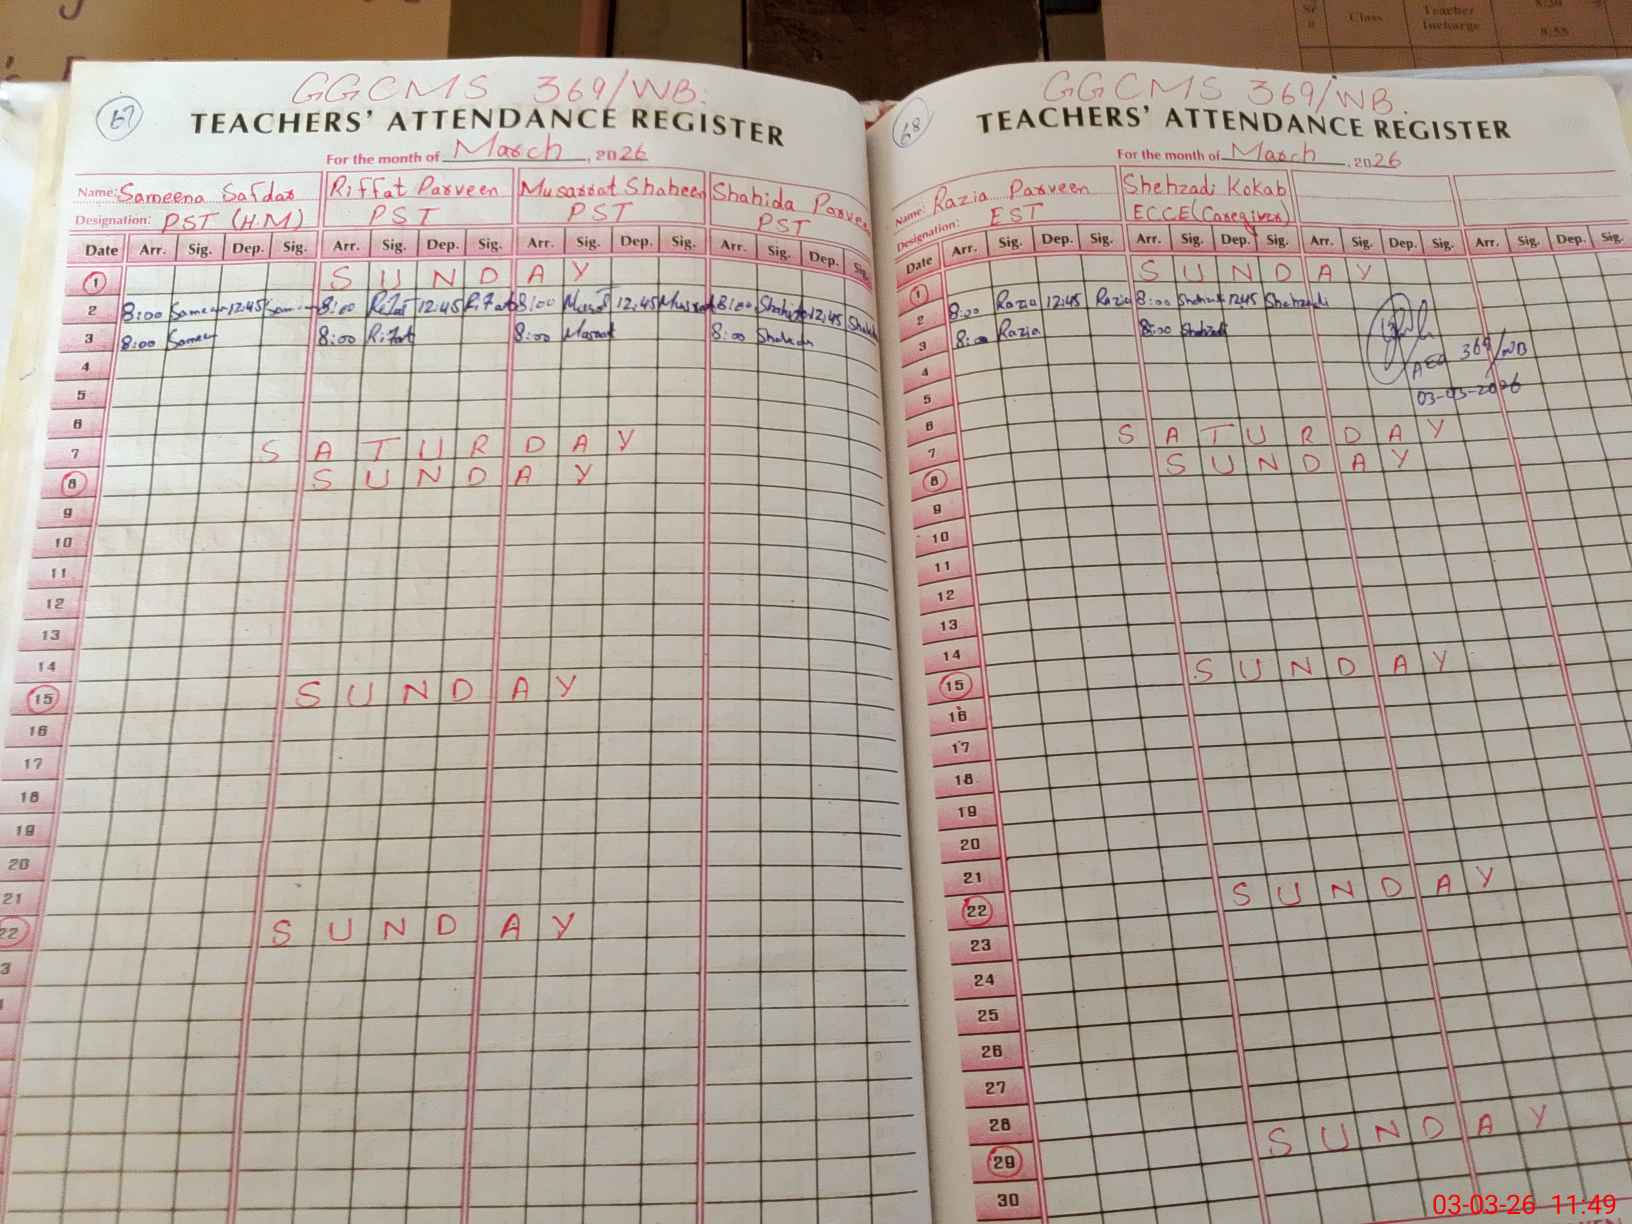 Sr
#
Class
Teacher
Incharge
8:55
GGCMS 369/WB.
67
TEACHERS' ATTENDANCE REGISTER
For the month of March, 2026
Name: Sameena Safdar Riffat Parveen Musarrat Shaheen Shahida Parveen
Designation: PST (H.M) PST PST PST
Date Arr. Sig. Dep. Sig. Arr. Sig. Dep. Sig. Arr. Sig. Dep. Sig. Arr. Sig. Dep. Sig.
1 SUNDAY
2 8:00 12:45 8:00 12:45 8:00 12:45 8:00 12:45
3 8:00 8:00 8:00 8:00
4
5
6
7 SATURDAY
8 SUNDAY
9
10
11
12
13
14
15 SUNDAY
16
17
18
19
20
21
22 SUNDAY
3
GGCMS 369/WB.
68
TEACHERS' ATTENDANCE REGISTER
For the month of March, 2026
Name: Razia Parveen Shehzadi Kokab
Designation: EST ECCE (Caregiver)
Date Arr. Sig. Dep. Sig. Arr. Sig. Dep. Sig. Arr. Sig. Dep. Sig. Arr. Sig. Dep. Sig.
1 SUNDAY
2 8:00 Razia 12:45 Razia 8:00 12:45 Shehzadi
3 8:00 Razia 8:00
AEO 369/WB
03-03-2026
4
5
6
7 SATURDAY
8 SUNDAY
9
10
11
12
13
14
15 SUNDAY
16
17
18
19
20
21
22 SUNDAY
23
24
25
26
27
28
29 SUNDAY
30
03-03-26 11:49